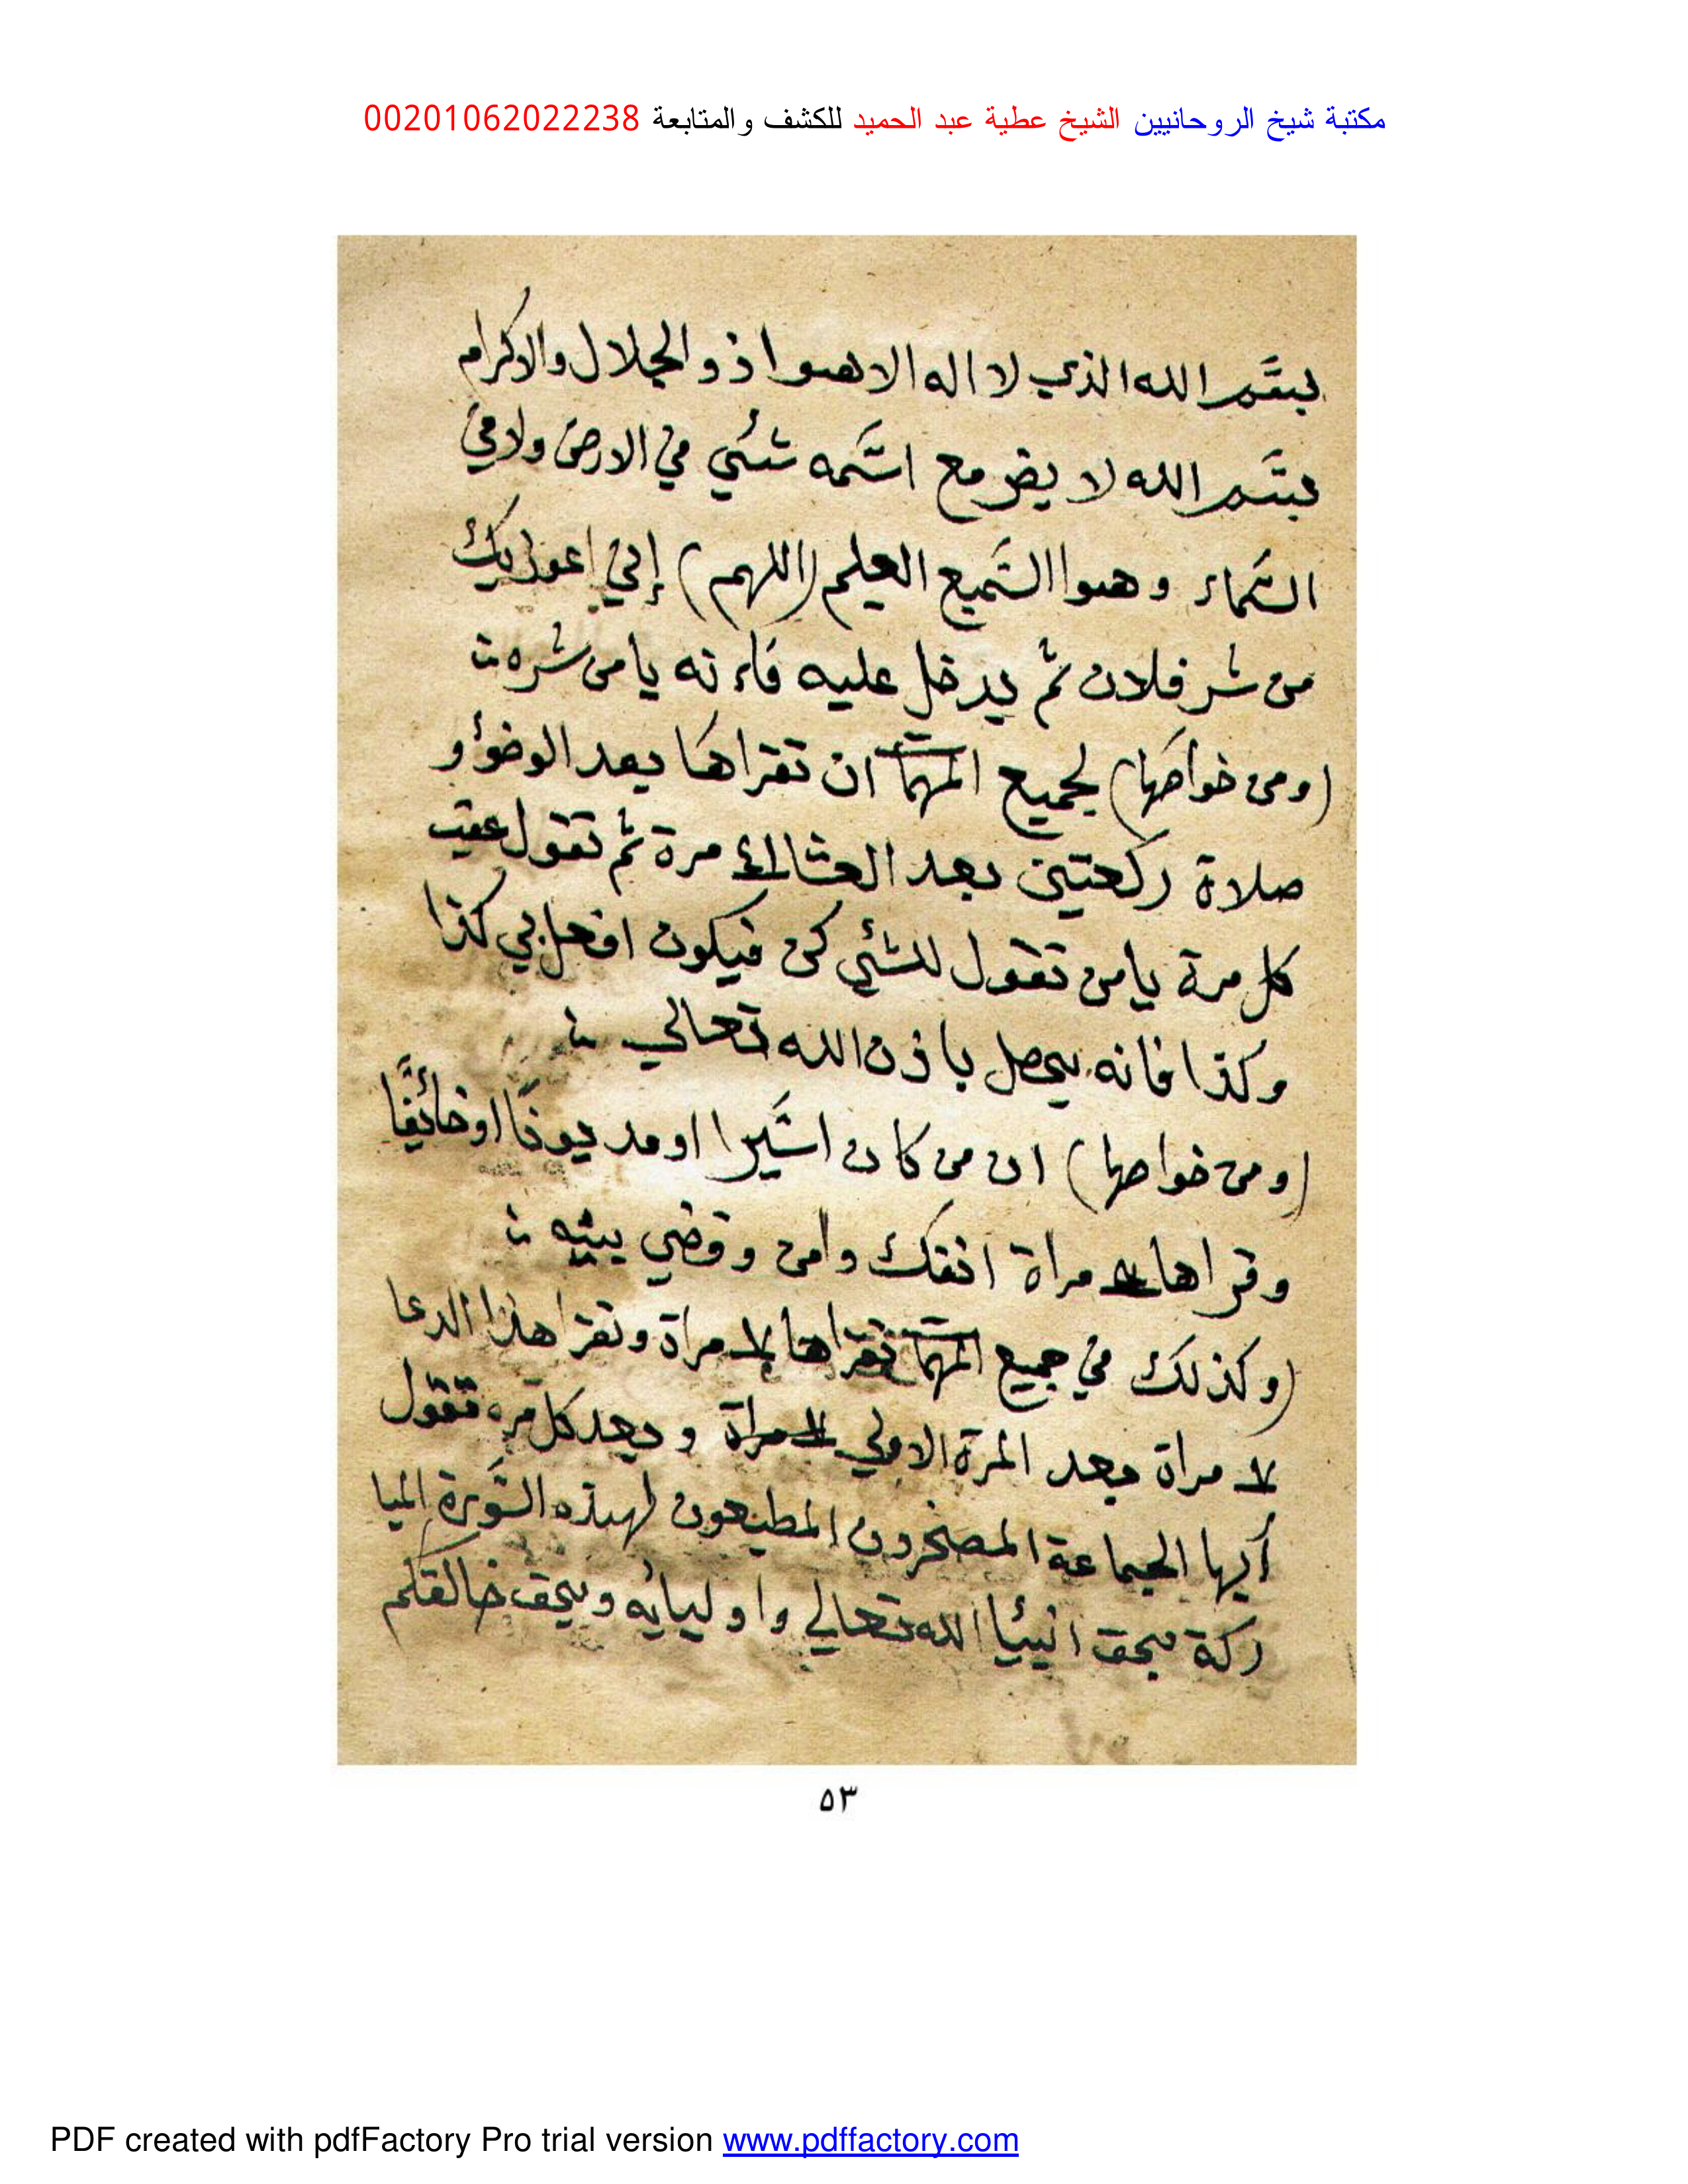 مكتبة شيخ الروحانيين الشيخ عطية عبد الحميد للكشف والمتابعة 00201062022238
بسم الله الذي لا اله الا هوا ذو الجلال والاكرام
بسم الله لا يضر مع اسمه شئي في الارض ولا في
السماء وهوا السميع العليم (اللهم) إني اعوذ بك
من شر فلان ثم يدخل عليه فاءنه يامن شره
(ومن خواصها) لجميع المهمات ان تقراها بعد الوضؤ و
صلاة ركعتين بعد العشا مرة ثم تقول عقب
كل مرة يامن تقول للشئي كن فيكون افعل بي كذا
وكذا فانه يحصل باذن الله تعالي
(ومن خواصها) ان من كان اسيرا او مديونًا او خائفًا
وقراها مراة انفك وامن وقضي
(وكذلك في جميع المهمات تقراها مراة وتقرا هذا الدعا
مراة بعد المرة الاولي مراة وبعد كل مره تقول
أيها الجماعة المصخرون المطيعون لهذه السورة المبا
ركة بحق انبيأ الله تعالي واوليائه وبحق خالقكم
٥٣
PDF created with pdfFactory Pro trial version www.pdffactory.com